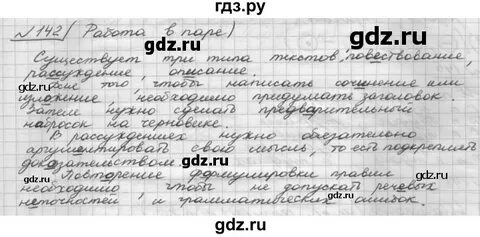 гдз.рф
№ 142 (Работа в паре)
гдз.рф
гдз.рф
Существует три типа текстов, повествование,
рассуждение, описание.
того, чтобы написать сочинение или
изложение, необходимо придумать заголовок.
Затем нужно сделать предварительный
набросок на черновике.
В рассуждениех нужно обязательно
аргументировать свою мысль, то есть подкреплять
доказательством.
Повторение формулировки правил
необходимо, чтобы не допускать речевых
неточностей и грамматических ошибок.
гдз.рф
гдз.рф